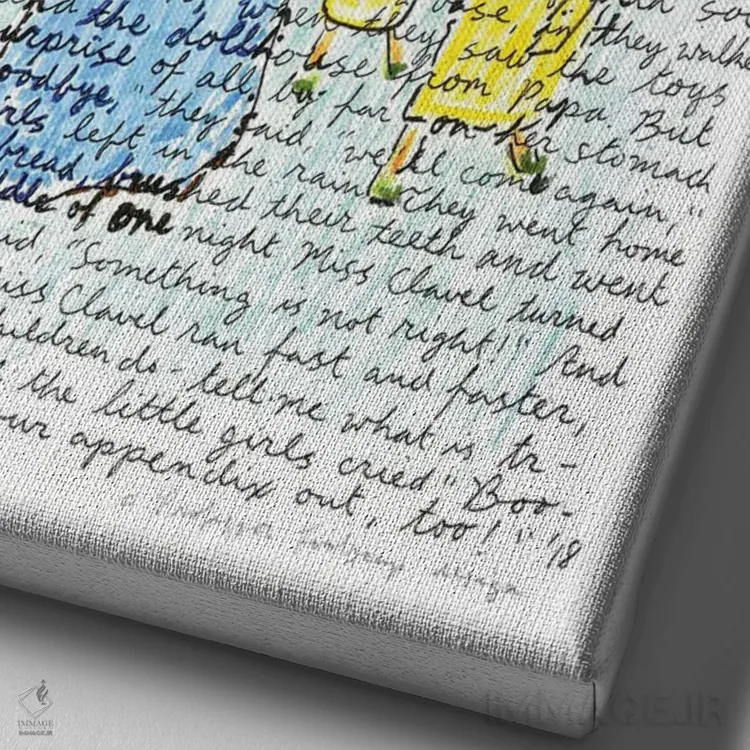 and so-
vase in they walked
, when they saw the toys
and the dollhouse from Papa. But
urprise of all, by far - on her stomach
oodbye," they said, "we'll come again,"
irls left in the rain. They went home
bread, brushed their teeth and went
ddle of one night Miss Clavel turned
id, "Something is not right!" And
iss Clavel ran fast and faster,
hildren do - tell me what is tr-
the little girls cried, "Boo-
ur appendix out, too!" '18
IMMAGE
IMMAGE.IR
IMMAGE.IR